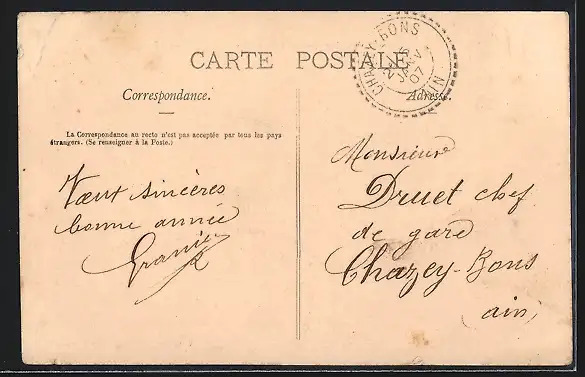 CARTE POSTALE
CHAZEY-BONS
JANV
07
AIN
Correspondance.
Adresse.
La Correspondance au recto n'est pas acceptée par tous les pays
étrangers. (Se renseigner à la Poste.)
Vœux sincères
bonne année
Granier
Monsieur
Druet chef
de gare
Chazey-Bons
(ain)